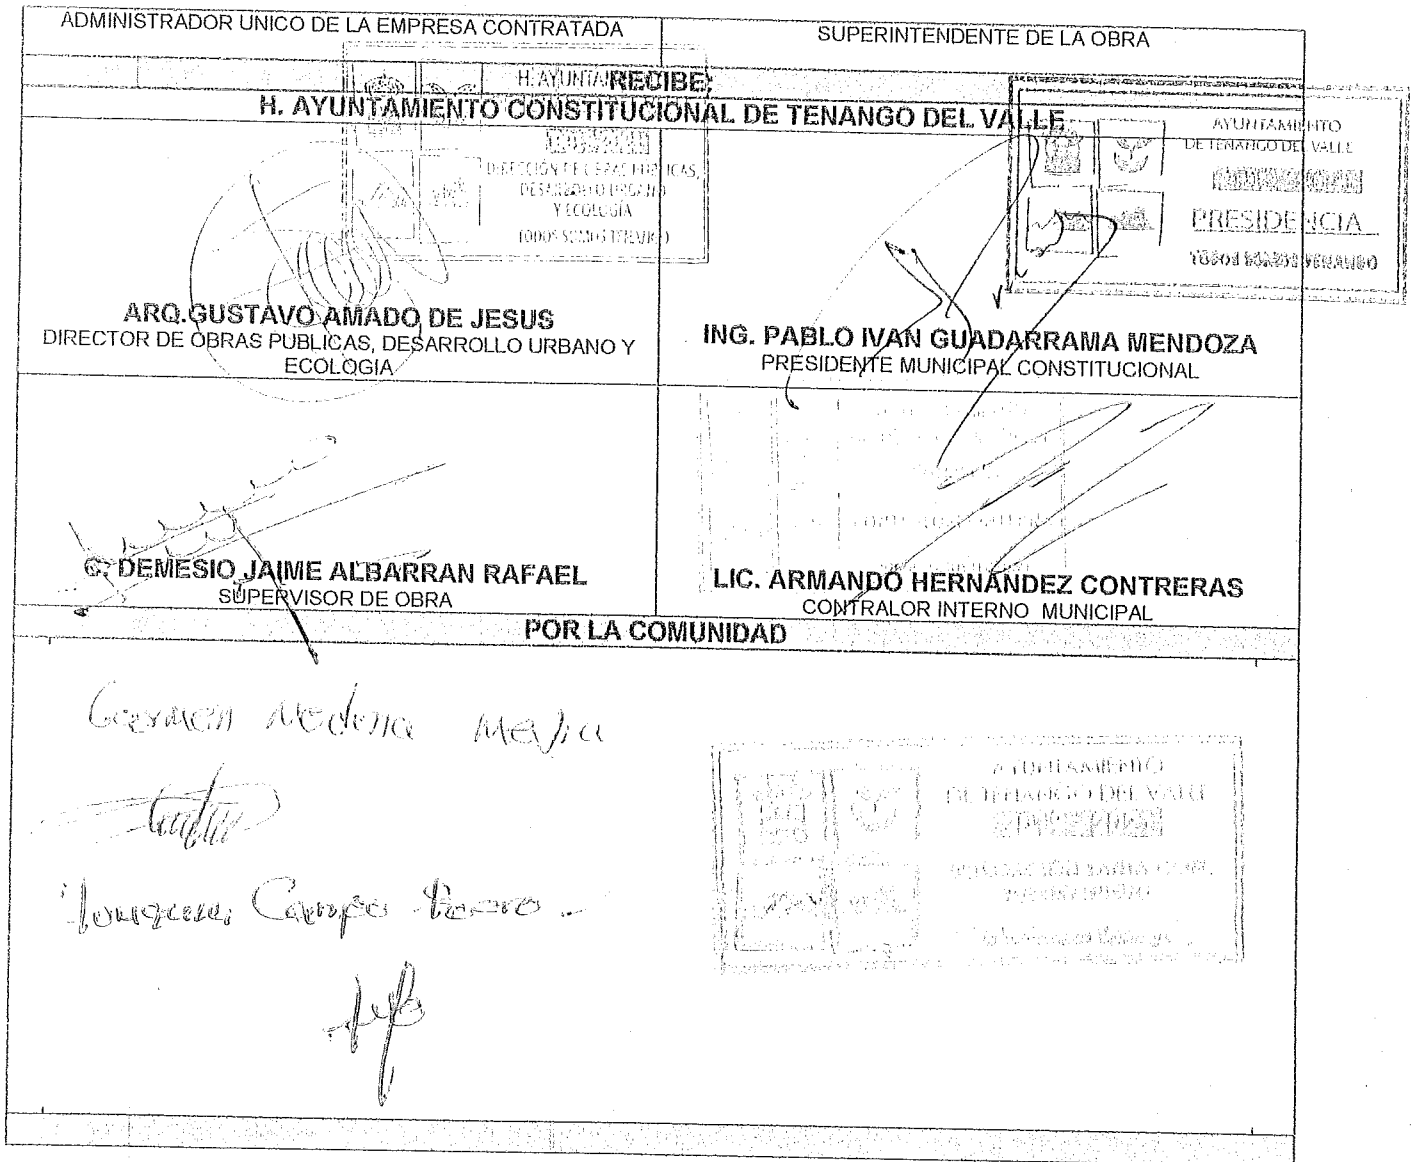 ADMINISTRADOR UNICO DE LA EMPRESA CONTRATADA
SUPERINTENDENTE DE LA OBRA
RECIBE:
H. AYUNTAMIENTO CONSTITUCIONAL DE TENANGO DEL VALLE
DIRECCIÓN DE OBRAS PUBLICAS,
DESARROLLO URBANO
Y ECOLOGÍA
TODOS SOMOS TENANGO
AYUNTAMIENTO
DE TENANGO DEL VALLE
PRESIDENCIA
TODOS SOMOS TENANGO
ARQ.GUSTAVO AMADO DE JESUS
DIRECTOR DE OBRAS PUBLICAS, DESARROLLO URBANO Y
ECOLOGIA
ING. PABLO IVAN GUADARRAMA MENDOZA
PRESIDENTE MUNICIPAL CONSTITUCIONAL
C. DEMESIO JAIME ALBARRAN RAFAEL
SUPERVISOR DE OBRA
LIC. ARMANDO HERNÁNDEZ CONTRERAS
CONTRALOR INTERNO MUNICIPAL
POR LA COMUNIDAD
Carmen Medina Mejia
AYUNTAMIENTO
DE TENANGO DEL VALLE
Campo